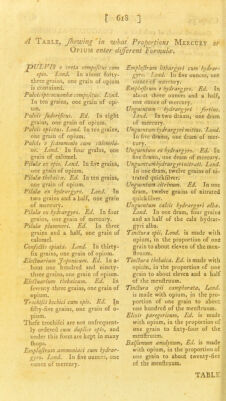 [ 618 ]
A TABLE, shewing in what Proportions MERCURY or
OPIUM enter different Formulæ.
PULVIS e creta compositus cum
opio. Lond. In about forty-
three grains, one grain of opium
is contained.
Pulvis ipecacuanhæ compositus. Lond.
In ten grains, one grain of opi-
um.
Pulvis sudorificus. Ed. In eight
grains, one grain of opium.
Pulvis opiatus. Lond. In ten grains,
one grain of opium.
Pulvis e scammonio cum calomela-
ne. Lond. In four grains, one
grain of calomel.
Pilulæ ex opio. Lond. In five grains,
one grain of opium.
Pilulæ thebaicæ. Ed. In ten grains,
one grain of opium.
Pilulæ ex hydrargyro. Lond. In
two grains and a half, one grain
of mercury.
Pilulæ ex hydrargyro. Ed. In four
grains, one grain of mercury.
Pilulæ plummeri. Ed. In three
grains and a half, one grain of
calomel.
Confectio opiata. Lond. In thirty-
six grains, one grain of opium.
Electuarium Japonicum. Ed. In a-
bout one hundred and ninety-
three grains, one grain of opium.
Electuarium thebaicum. Ed. In
seventy three grains, one grain of
opium.
Trochisci bechici cum opio. Ed. In
fifty-five grains, one grain of o-
pium.
These trochisci are not unfrequent-
ly ordered cum duplici opio, and
under this form are kept in many
shops.
Emplastrum ammoniaci cum hydrar-
gyro. Lond. In five ounces, one
ounce of mercury.
Emplastrum lithargyri cum hydrar-
gyro. Lond. In five ounces, one
ounce of mercury.
Emplastrum e hydrargyro. Ed. In
about three ounces and a half,
one ounce of mercury.
Unguentum hydrargyri fortius.
Lond. In two drams, one dram
of mercury.
Unguentum hydrargyri mitius. Lond.
In five drams, one dram of mer-
cury.
Unguentum ex hydrargyro. Ed. In
five drams, one dram of mercury.
Unguentum hydrargyri nitrati. Lond.
In one dram, twelve grains of ni-
trated quicksilver.
Unguentum citrinum. Ed. In one
dram, twelve grains of nitrated
quicksilver.
Unguentum calcis hydrargyri albæ.
Lond. In one dram, four grains
and an half of the calx hydrar-
gyri alba.
Tinctura opii. Lond. is made with
opium, in the proportion of one
grain to about eleven of the men-
struum.
Tinctura thebaica. Ed. is made with
opium, in the proportion of one
grain to about eleven and a half
of the menstruum.
Tinctura opii camphorata, Lond.
is made with opium, in the pro-
portion of one grain to about
one hundred of the menstruum.
Elixir paregoricum, Ed. is made
with opium, in the proportion of
one grain to sixty-four of the
menstruum.
Balsamum anodynum, Ed. is made
with opium, in the proportion of
one grain to about twenty-five
of the menstruum.
TABLE